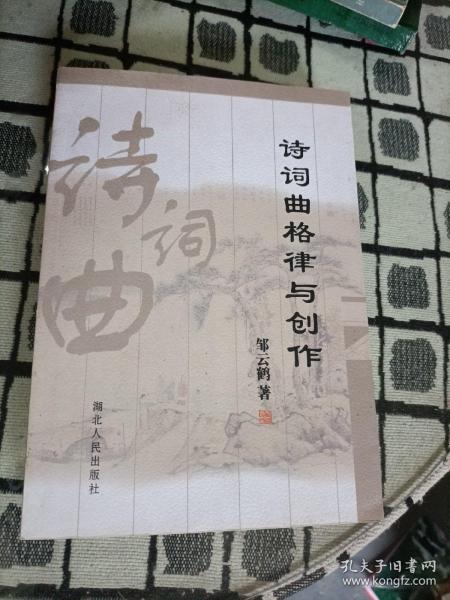 诗词曲格律与创作
邹云鹤 著
诗
词
曲
湖北人民出版社
孔夫子旧书网
www.kongfz.com